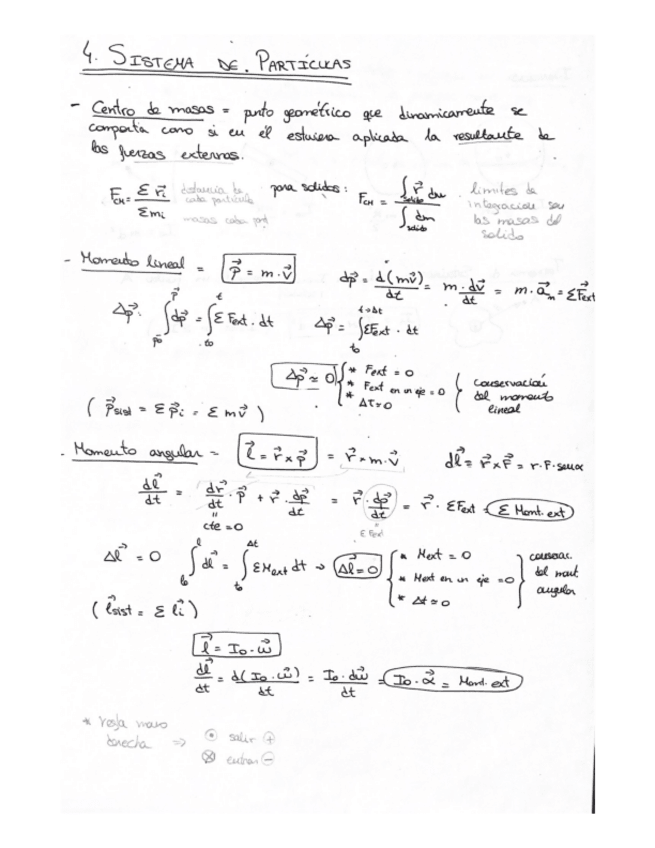 4. SISTEMA DE PARTÍCULAS
- Centro de masas = punto geométrico que dinamicamente se
comporta como si en él estuviera aplicada la resultante de
las fuerzas externas.
r_CM = Σ r⃗i / Σ mi distancia de cada partícula masas cada part para solidos: r_CM = ∫solido r⃗ dm / ∫solido dm limites de integracion son las masas del solido
- Momento lineal = p⃗ = m · v⃗ dp⃗ = d(mv⃗)/dt = m · dv⃗/dt = m · a⃗m = ΣF⃗ext
Δp⃗: ∫p⃗o^p⃗ dp⃗ = ∫to^t ΣFext · dt Δp⃗ = ∫to^t+Δt ΣFext · dt
Δp⃗ ≃ 0 { * Fext = 0 * Fext en un eje = 0 * Δt ≃ 0 } conservación del momento lineal
(p⃗sist = Σ p⃗i = Σ mv⃗)
- Momento angular = l⃗ = r⃗ × p⃗ = r⃗ · m · v⃗ dl⃗ = r⃗ × F⃗ = r · F · senα
dl⃗/dt = dr⃗/dt · p⃗ + r⃗ · dp⃗/dt = r⃗ · dp⃗/dt = r⃗ · ΣFext = Σ Mont. ext
" cte = 0 " Σ Fext
Δl⃗ = 0 ∫lo^l dl⃗ = ∫to^Δt ΣMext dt → Δl⃗ = 0 { * Mext = 0 * Mext en un eje = 0 * Δt ≃ 0 } conservac. del mont. angular
(l⃗sist = Σ l⃗i)
l⃗ = Io · ω⃗
dl⃗/dt = d(Io · ω⃗)/dt = Io · dω⃗/dt = Io · α⃗ = Mont. ext
* regla mano
derecha ⇒ ⊙ salir ⊕
⊗ entrar ⊖